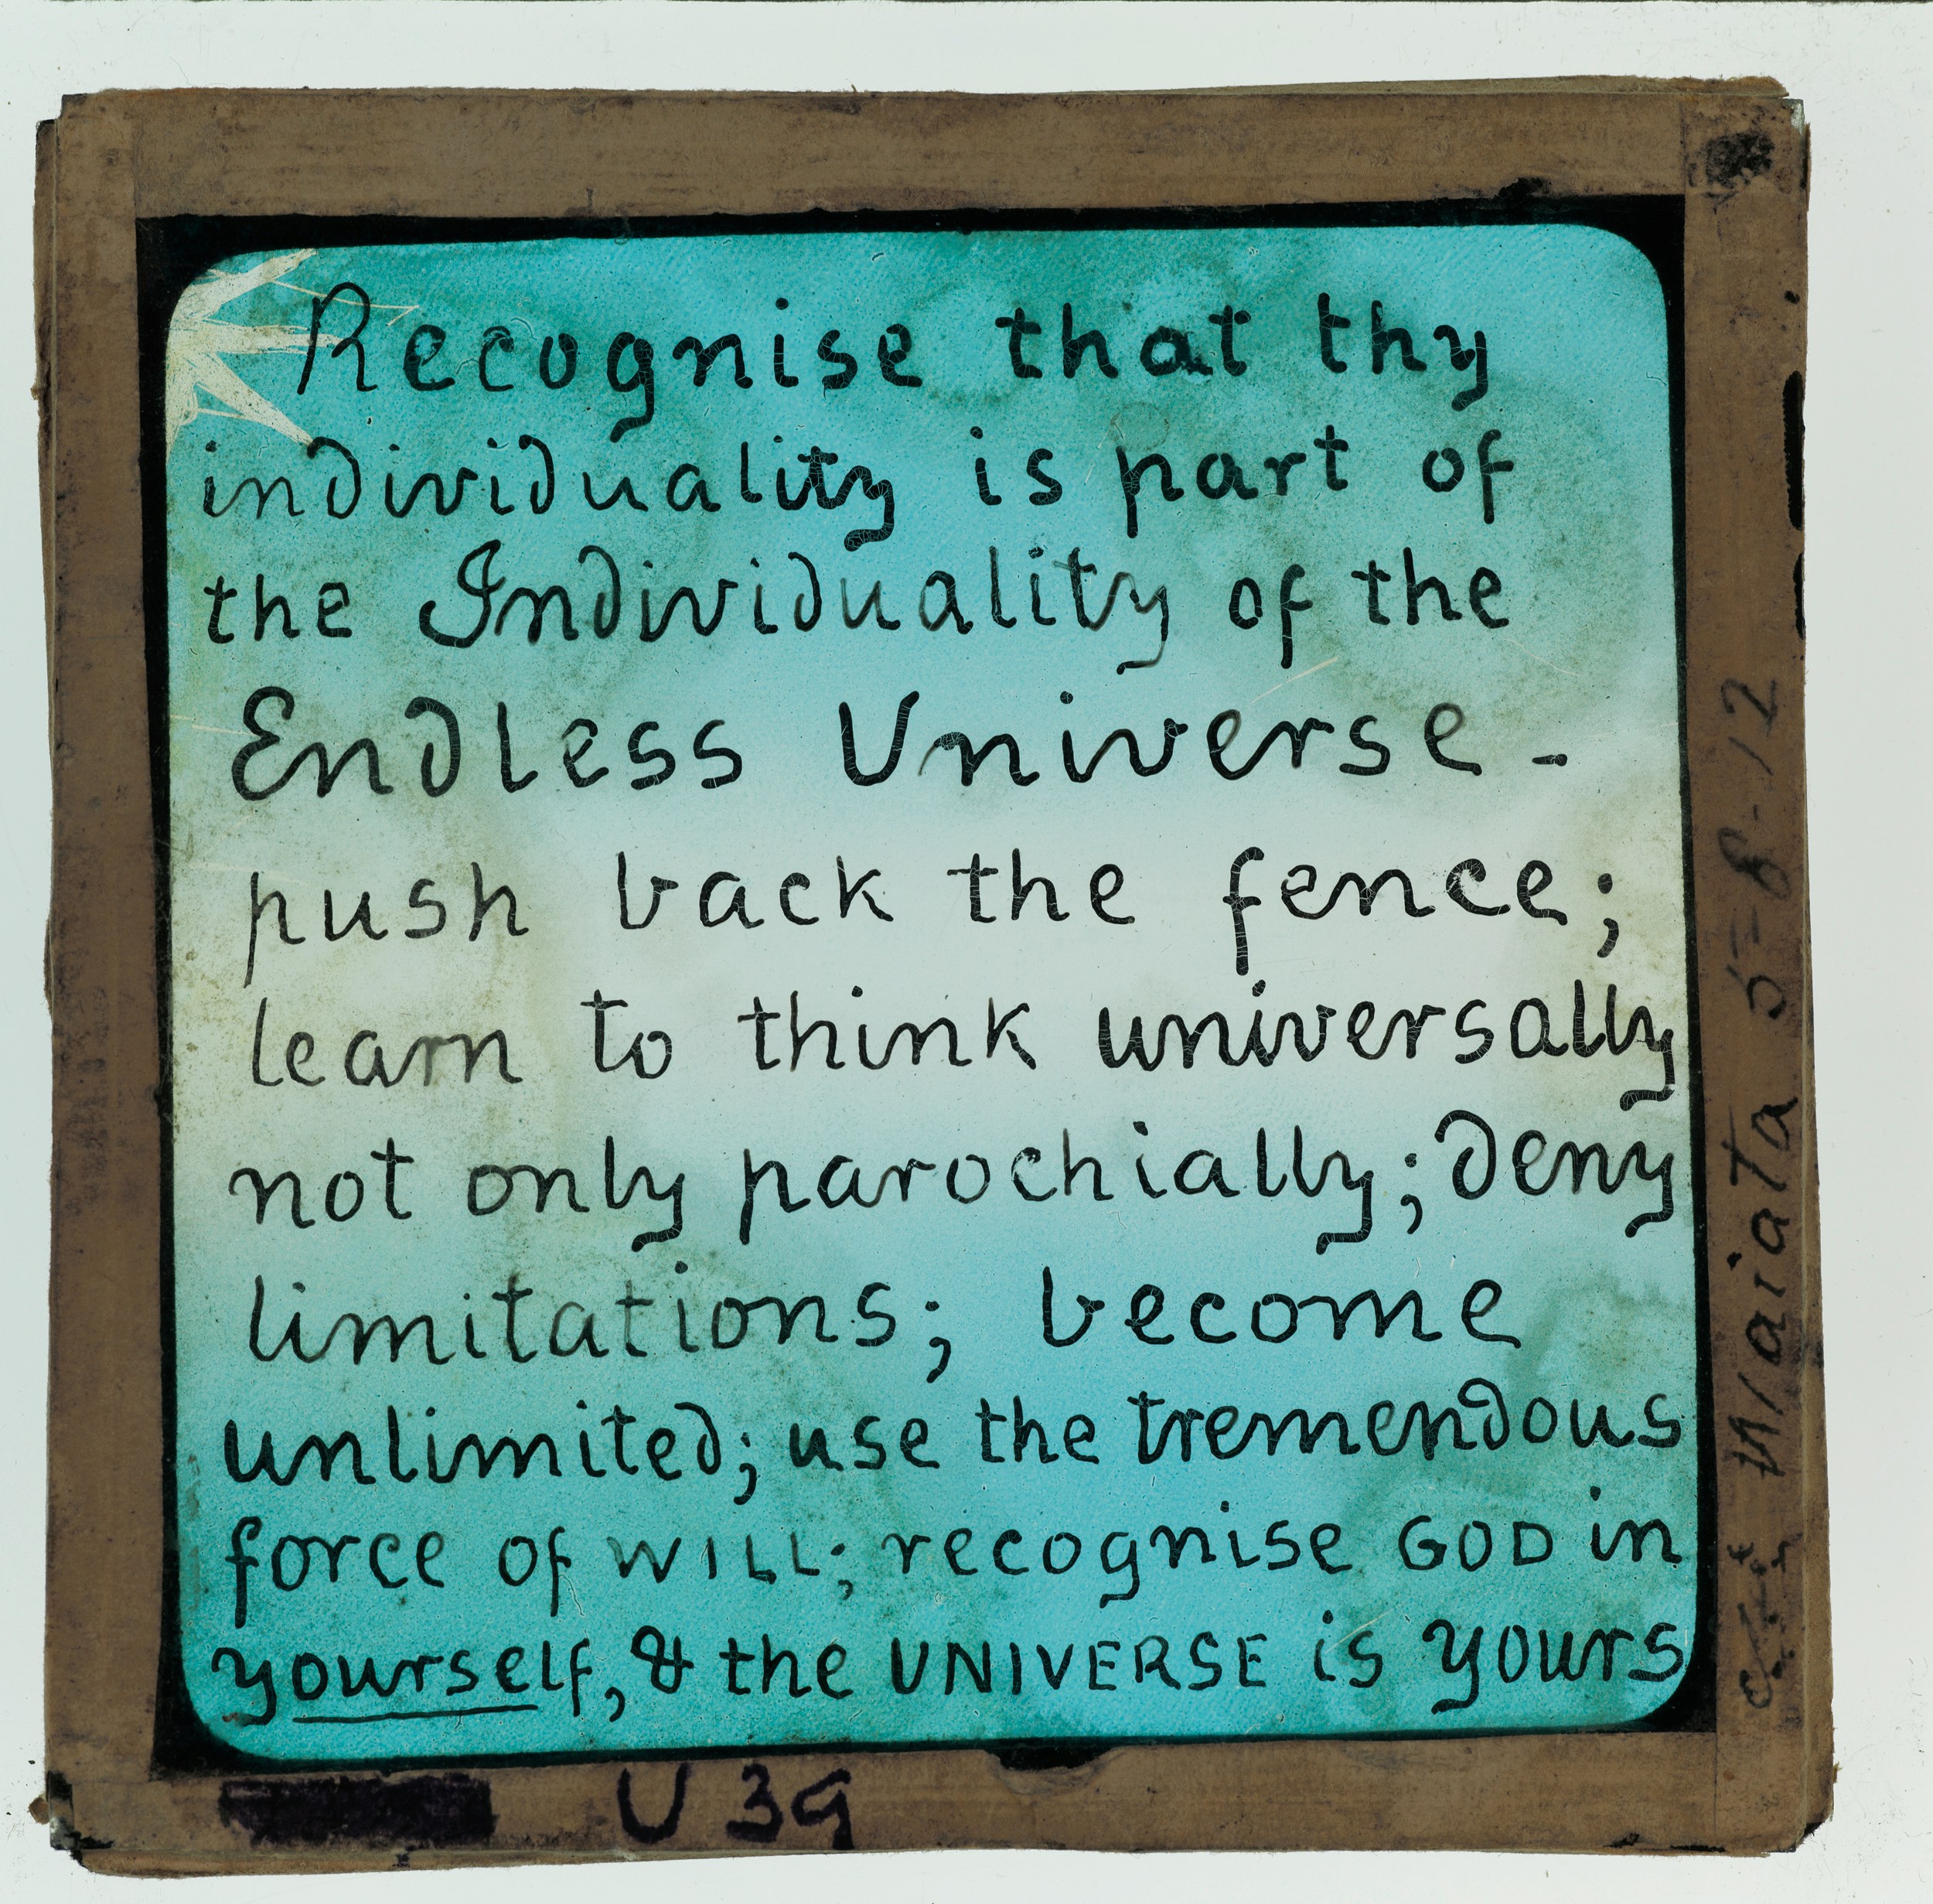 Recognise that thy
individuality is part of
the Individuality of the
Endless Universe -
push back the fence;
learn to think universally
not only parochially; deny
limitations; become
unlimited; use the tremendous
force of WILL; recognise GOD in
yourself, & the UNIVERSE is yours
U 39
Waiata 5-8-12